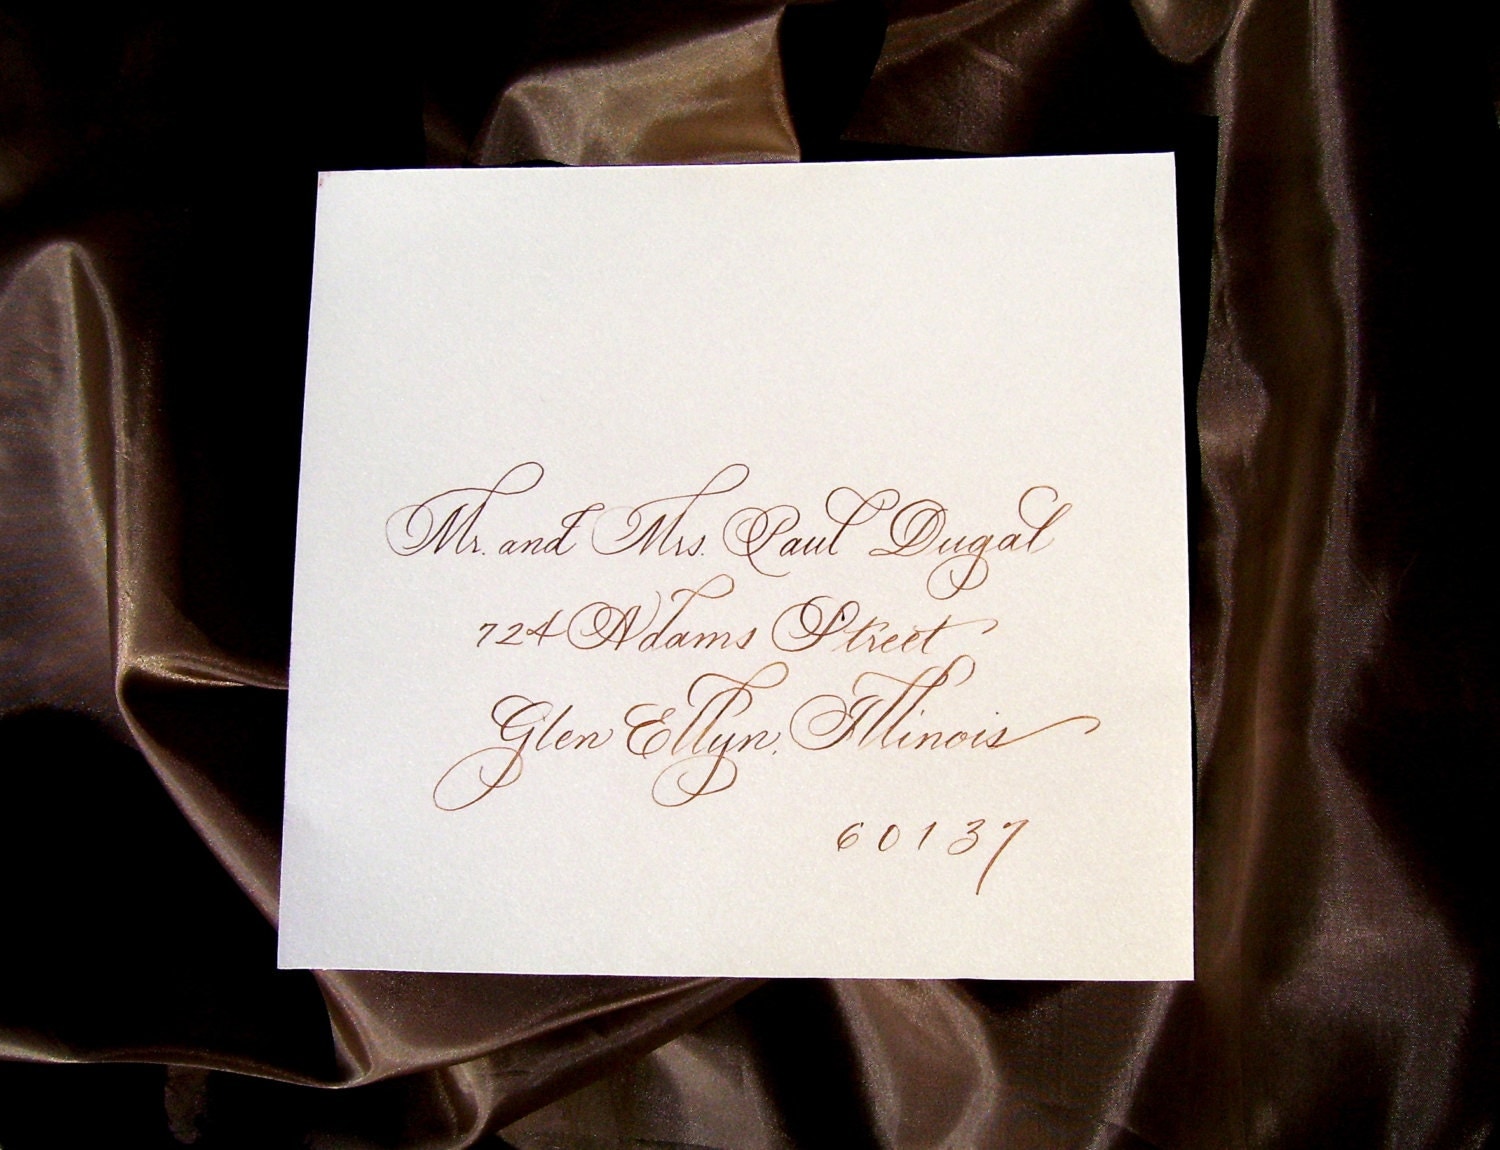 Mr. and Mrs. Paul Dugal
724 Adams Street
Glen Ellyn, Illinois
60137